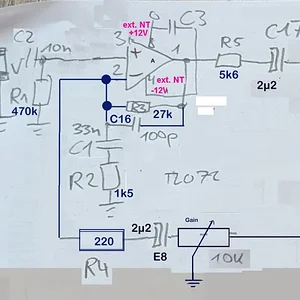 ext. NT
+12V
C3
C2
10n
3
8
1
+
A
R5
C17
2
4
ext. NT
-12V
5k6
2µ2
R1
R3
27k
470k
C16
100p
33n
C1
R2
1k5
TL072
2µ2
Gain
220
E8
10K
R4